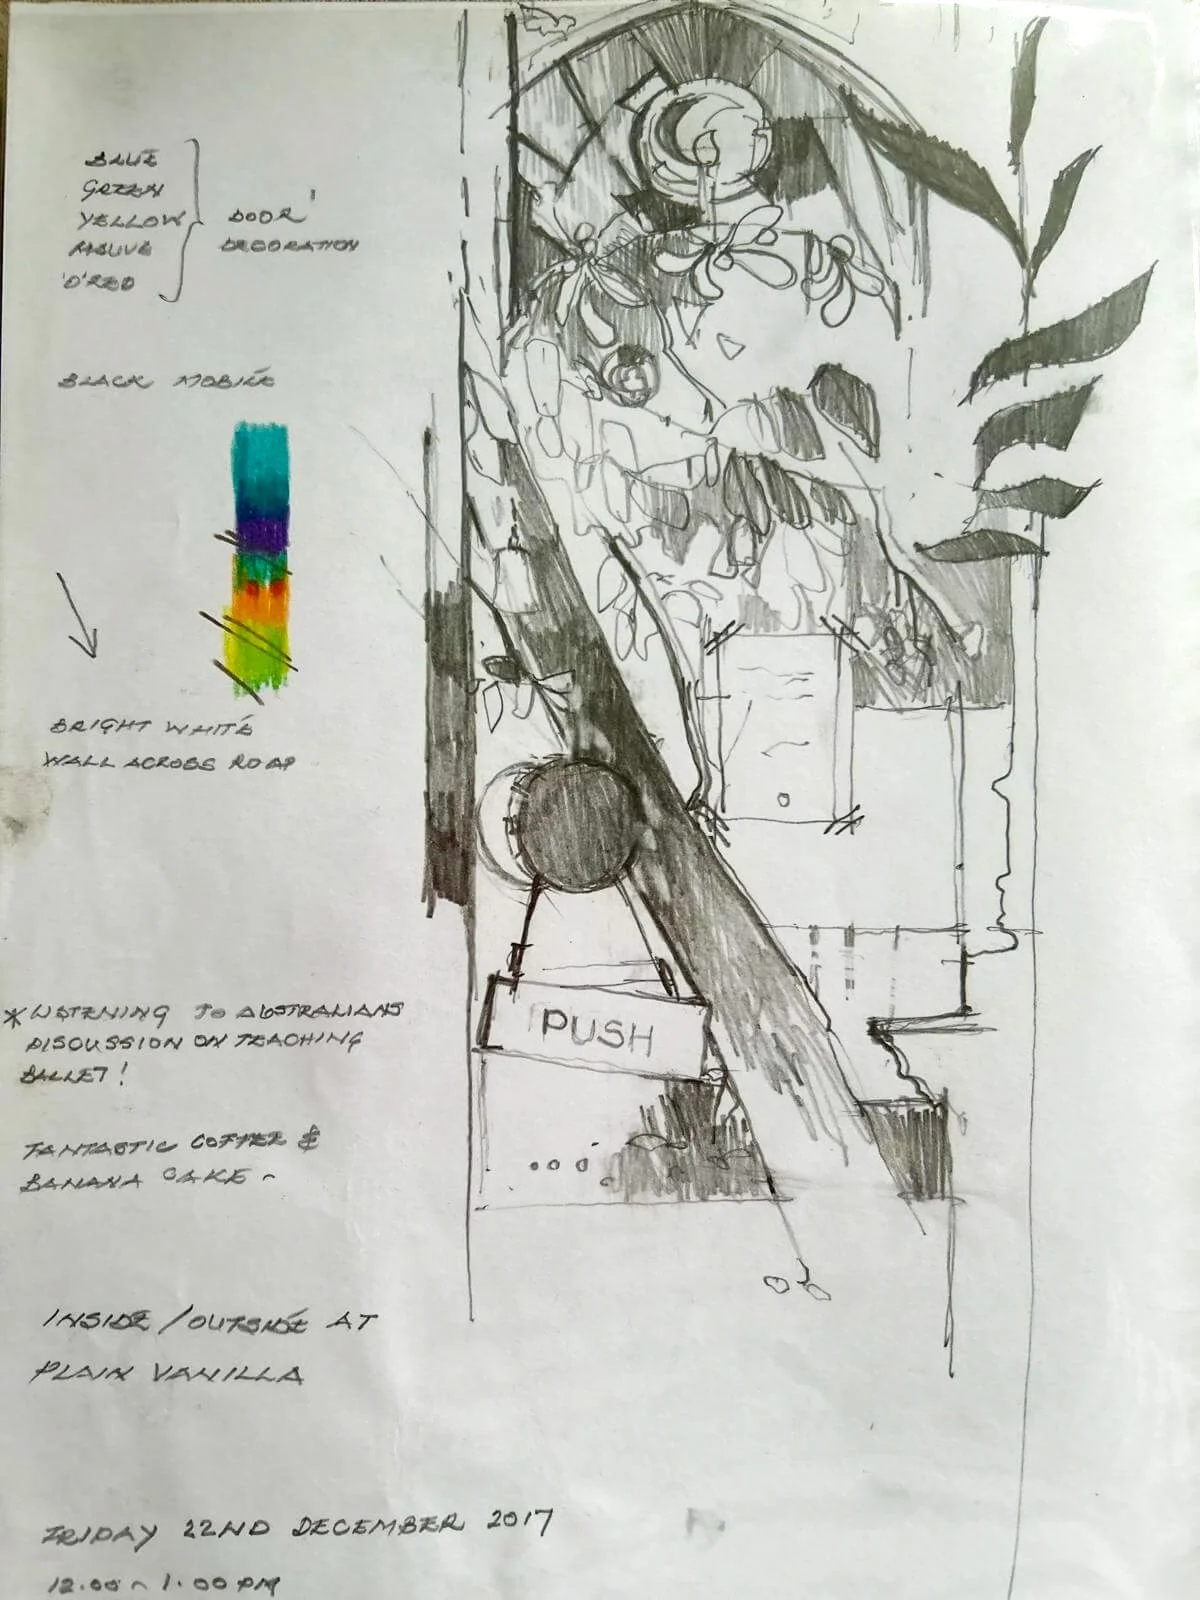 BLUE
GREEN
YELLOW
MAUVE
'O'RED
DOOR
DECORATION
BLACK MOBILE
BRIGHT WHITE
WALL ACROSS ROAD
* LISTENING TO AUSTRALIANS
DISCUSSION ON TEACHING
BALLET!
FANTASTIC COFFEE &
BANANA CAKE ~
PUSH
INSIDE/OUTSIDE AT
PLAIN VANILLA
FRIDAY 22ND DECEMBER 2017
12.00 ~ 1.00 PM